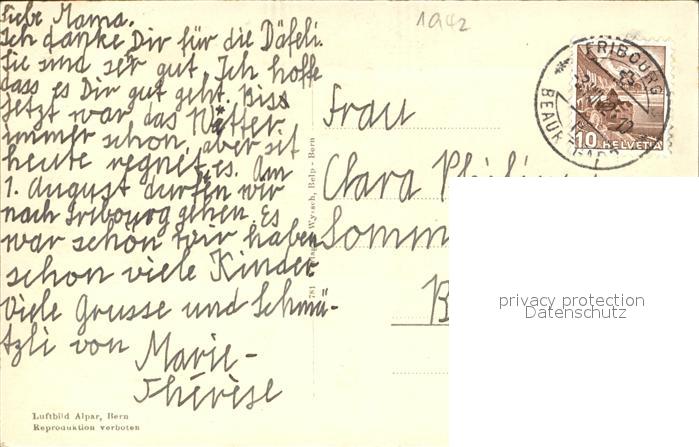 Liebe Mama.
Ich danke Dir für die Däfeli.
Sie sind ser gut. Ich hoffe
dass es Dir gut geht. Biss
jetzt war das Wetter
immer schon, aber sit
heute regnet es. Am
1. August durfen wir
nach Fribourg gehen. Es
war schön wir haben
schon viele Kinder
Viele Grusse und Schmü-
tzli von Marie-
Thérèse
1942
Frau
Clara
Somm
B
FRIBOURG
BEAUREGARD
10 HELVETIA
781 Verlag Wyssch, Belp-Bern
privacy protection
Datenschutz
Luftbild Alpar, Bern
Reproduktion verboten